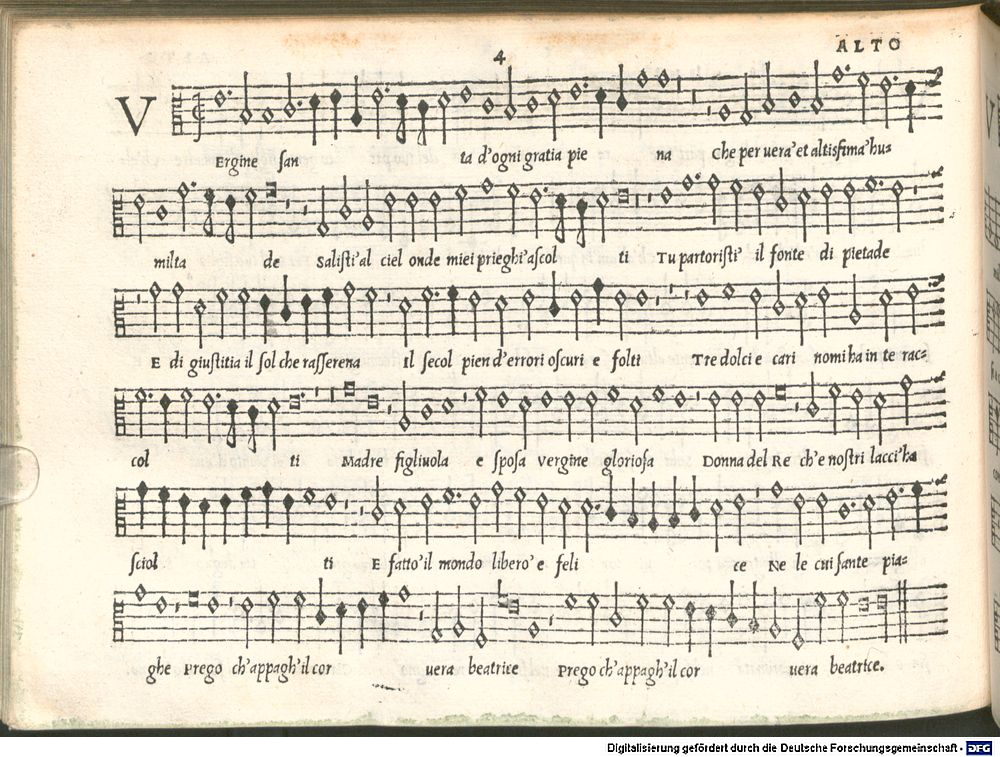 4
ALTO
VErgine san ta d'ogni gratia pie na Che per vera' et altissima' hu-
milta de Salisti' al ciel onde miei prieghi' ascol ti Tu partoristi' il fonte di pietade
E di giustitia il sol che rasserena Il secol pien d'errori oscuri e folti Tre dolci e cari nomi ha in te rac-
col ti Madre figliuola e sposa vergine gloriosa Donna del Re ch'e nostri lacci' ha
sciol ti E fatto' il mondo libero' e feli ce Ne le cui sante pia-
ghe Prego ch'appagh' il cor vera beatrice Prego ch'appagh' il cor vera beatrice.
Digitalisierung gefördert durch die Deutsche Forschungsgemeinschaft - DFG